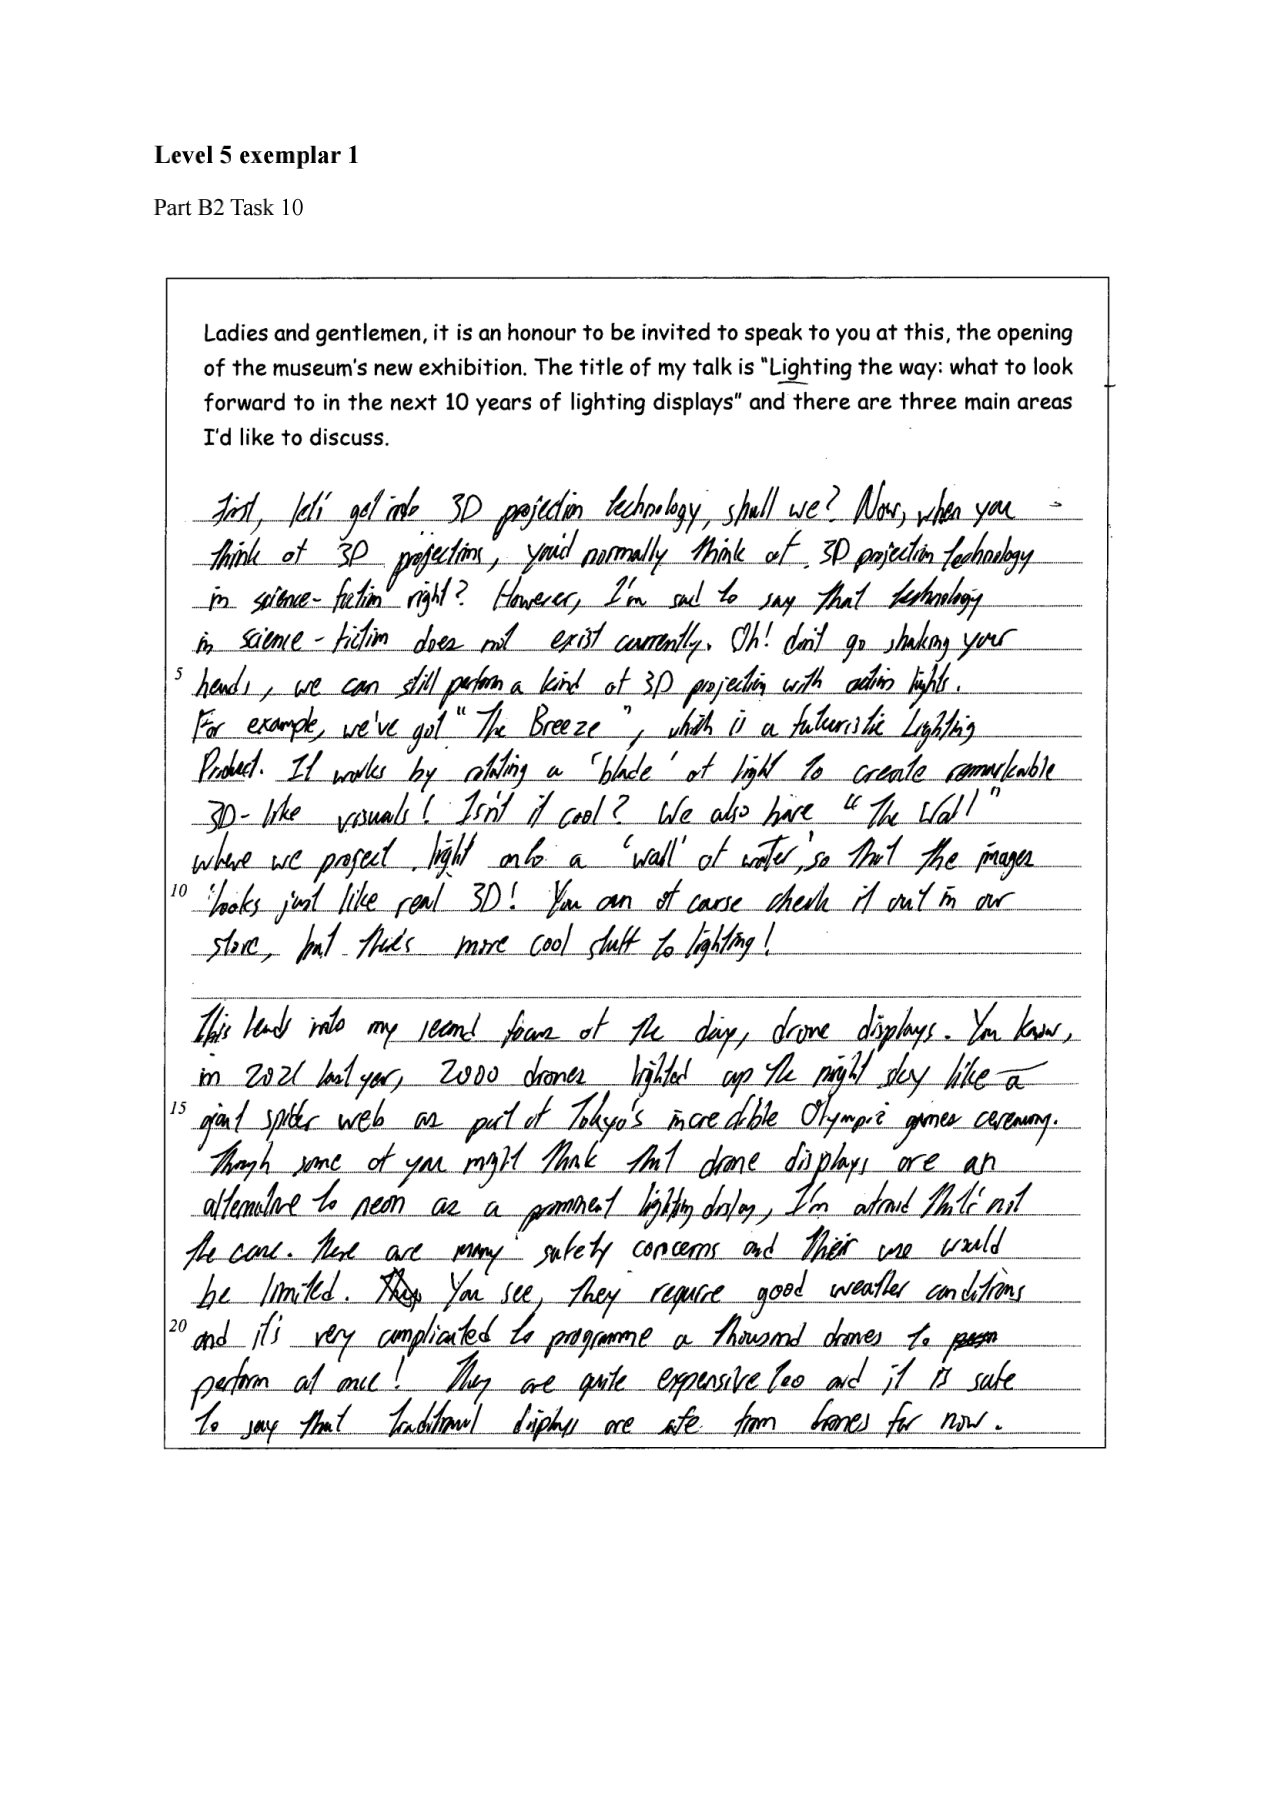 Level 5 exemplar 1
Part B2 Task 10
Ladies and gentlemen, it is an honour to be invited to speak to you at this, the opening
of the museum's new exhibition. The title of my talk is "Lighting the way: what to look
forward to in the next 10 years of lighting displays" and there are three main areas
I'd like to discuss.
First, let's get into 3D projection technology, shall we? Now, when you
think of 3D projections, you'd normally think of 3D projection technology
in science-fiction right? However, I'm sad to say that technology
in science-fiction does not exist currently. Oh! don't go shaking your
5 heads, we can still perform a kind of 3D projecting with action lights.
For example, we've got "The Breeze", which is a futuristic Lighting
Product. It works by rotating a 'blade' of light to create remarkable
3D-like visuals! Isn't it cool? We also have "The Wall"
where we project light onto a 'wall' of water, so that the images
10 looks just like real 3D! You can of carse check it out in our
store, but there's more cool stuff to lighting!
This leads into my second focus of the day, drone displays. You know,
in 2021 last year, 2000 drones lighted up the night sky like a
15 giant spider web as part of Tokyo's incredible Olympic games ceremony.
Though some of you might think that drone displays are an
alternative to neon as a prominent lighting display, I'm afraid that's not
the case. There are many safety concerns and their use would
be limited. You see, they require good weather conditions
20 and it's very complicated to programme a thousand drones to
perform at once! They are quite expensive too and it is safe
to say that traditional displays are safe from drones for now.